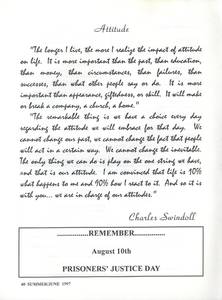 Attitude
"The longer I live, the more I realize the impact of attitude
on life. It is more important than the past, than education,
than money, than circumstances, than failures, than
successes, than what other people say or do. It is more
important than appearance, giftedness, or skill. It will make
or break a company, a church, a home."
"The remarkable thing is we have a choice every day
regarding the attitude we will embrace for that day. We
cannot change our past, we cannot change the fact that people
will act in a certain way. We cannot change the inevitable.
The only thing we can do is play on the one string we have,
and that is our attitude. I am convinced that life is 10%
what happens to me and 90% how I react to it. And so it is
with you... we are in charge of our attitudes."
Charles Swindoll
................REMEMBER................
August 10th
PRISONERS' JUSTICE DAY
40 SUMMER/JUNE 1997